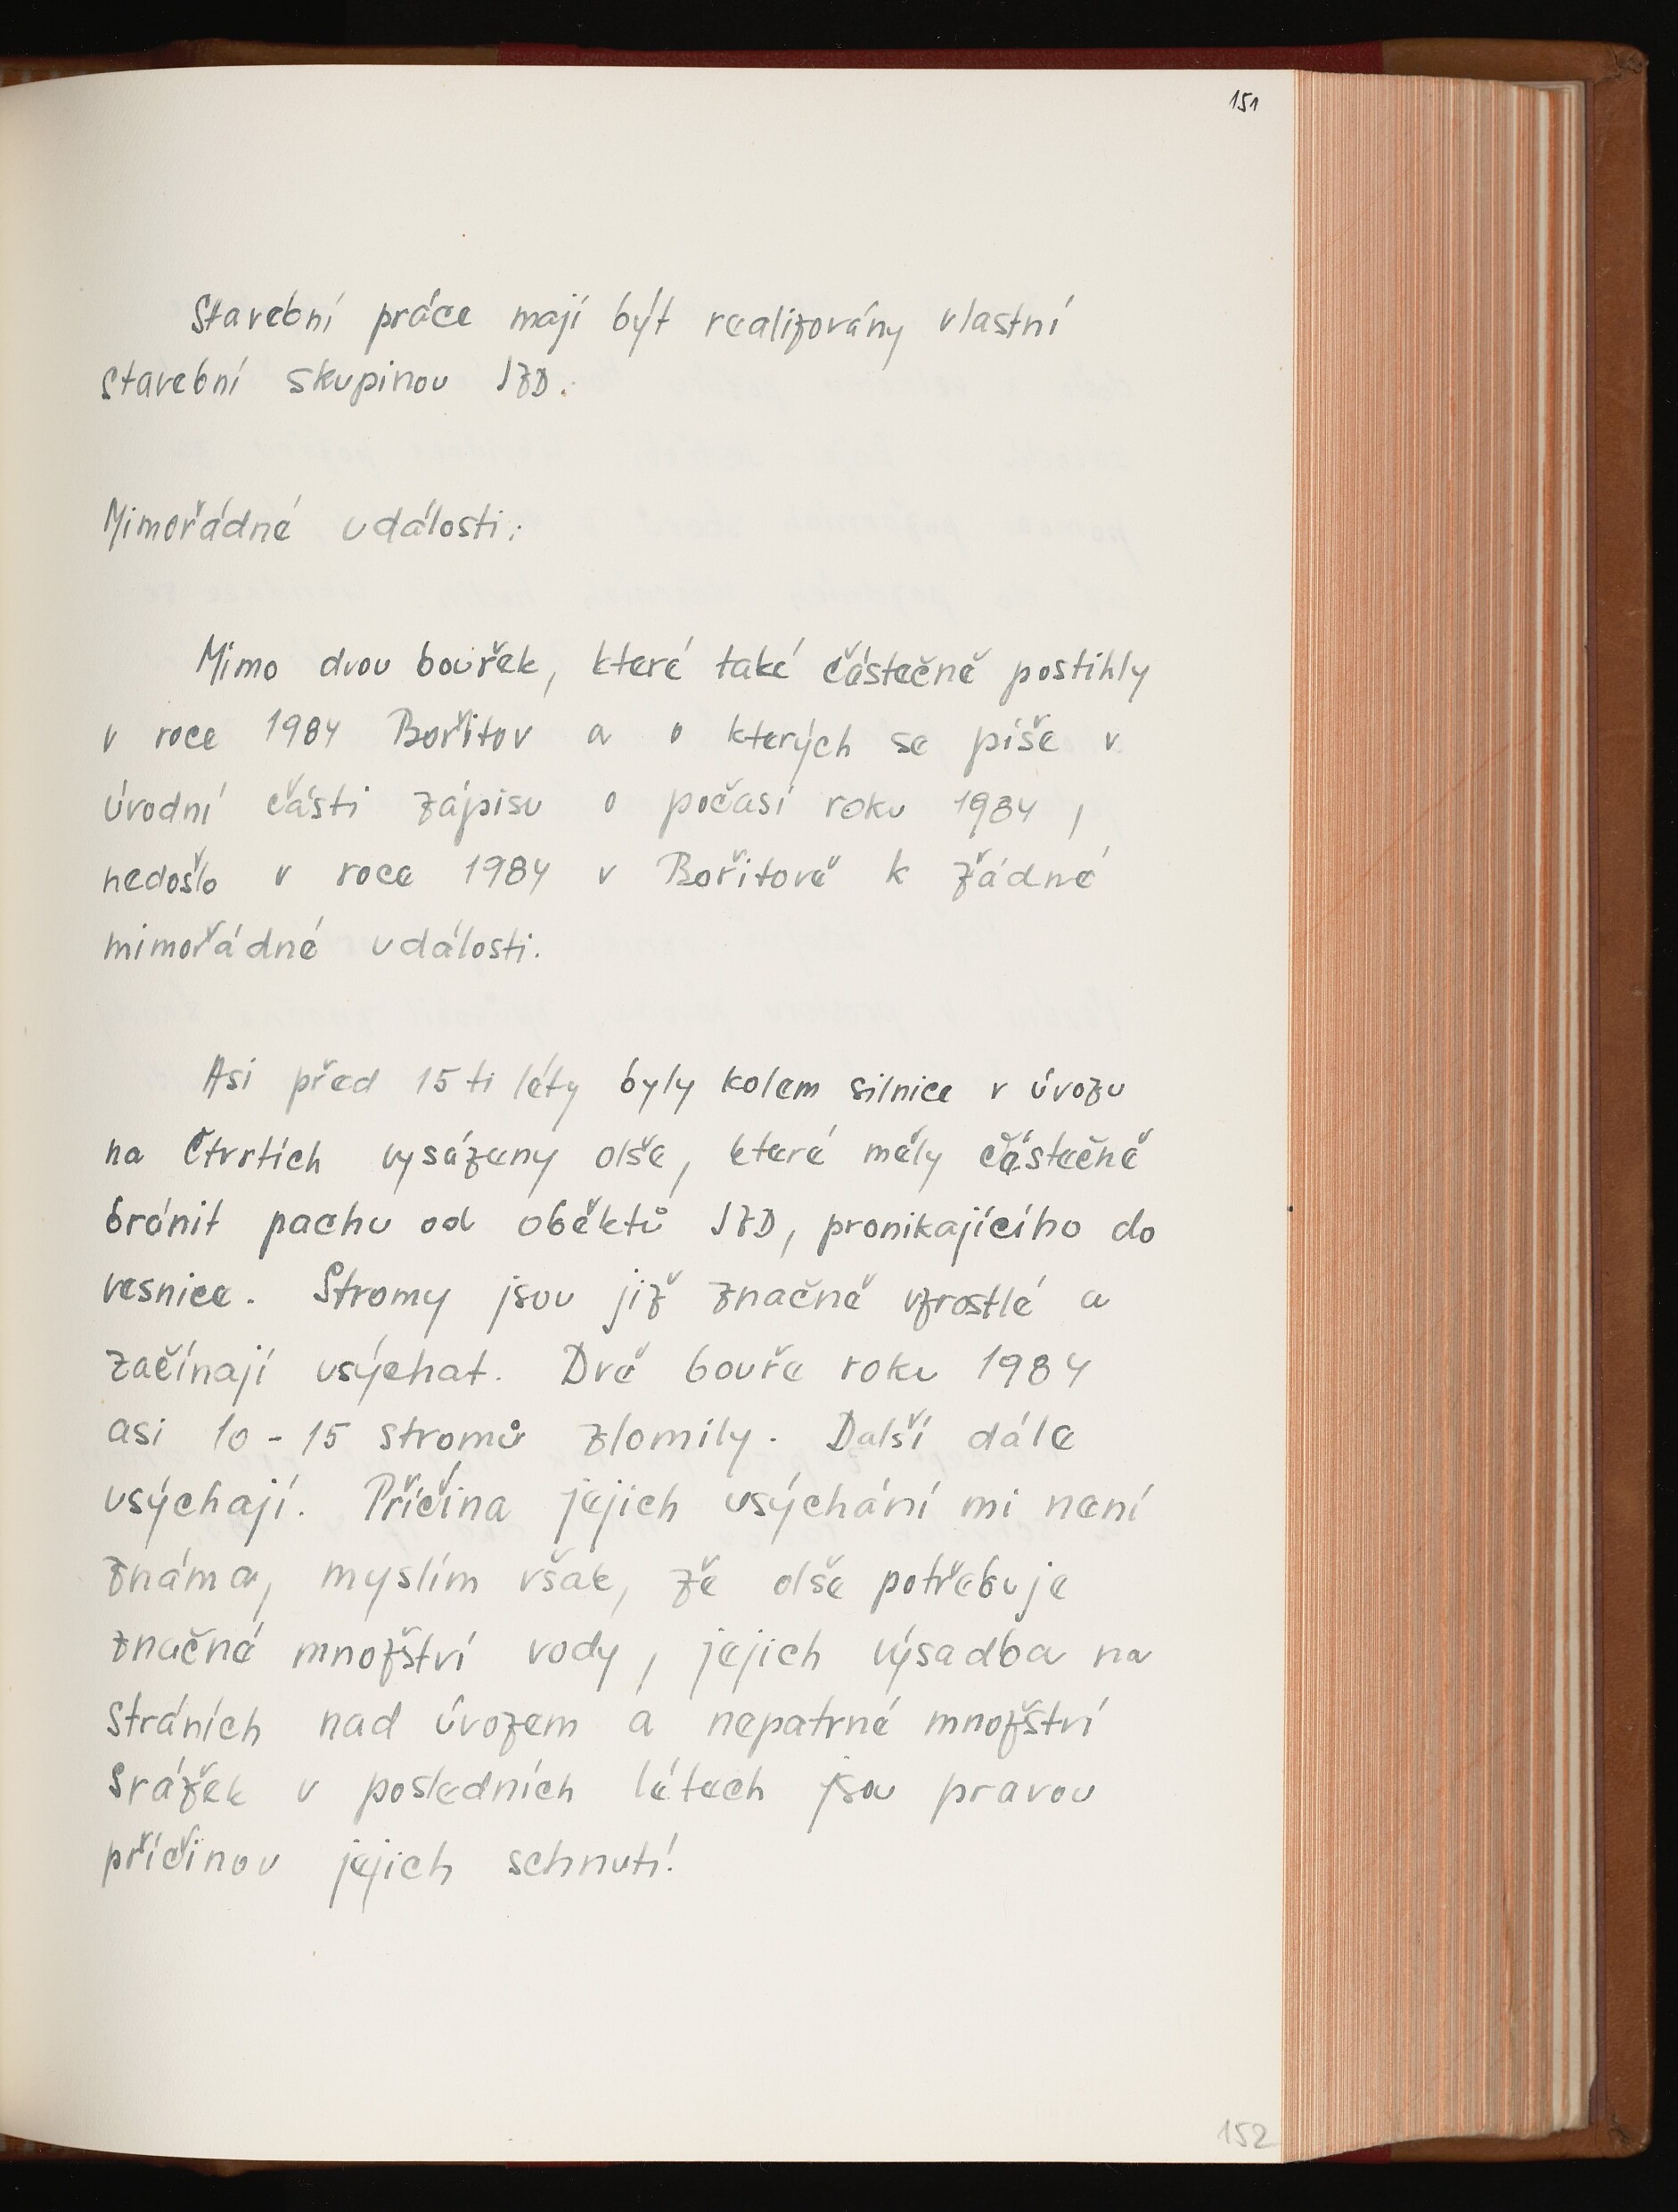 151
Stavební práce mají být realizovány vlastní
stavební skupinou JZD.
Mimořádné události:
Mimo dvou bouřek, které také částečně postihly
v roce 1984 Bořitov a o kterých se píše v
úvodní části zápisu o počasí roku 1984,
nedošlo v roce 1984 v Bořitově k žádné
mimořádné události.
Asi před 15ti léty byly kolem silnice v úvozu
na Čtvrtích vysázeny olše, které měly částečně
bránit pachu od oběktů JZD, pronikajícího do
vesnice. Stromy jsou již značně vzrostlé a
začínají usýchat. Dvě bouře roku 1984
asi 10-15 stromů zlomily. Další dále
usýchají. Příčina jejich usýchání mi není
známa, myslím však, že olše potřebuje
značné množství vody, jejich výsadba na
stráních nad úvozem a nepatrné množství
srážek v posledních létech jsou pravou
příčinou jejich schnutí!
152